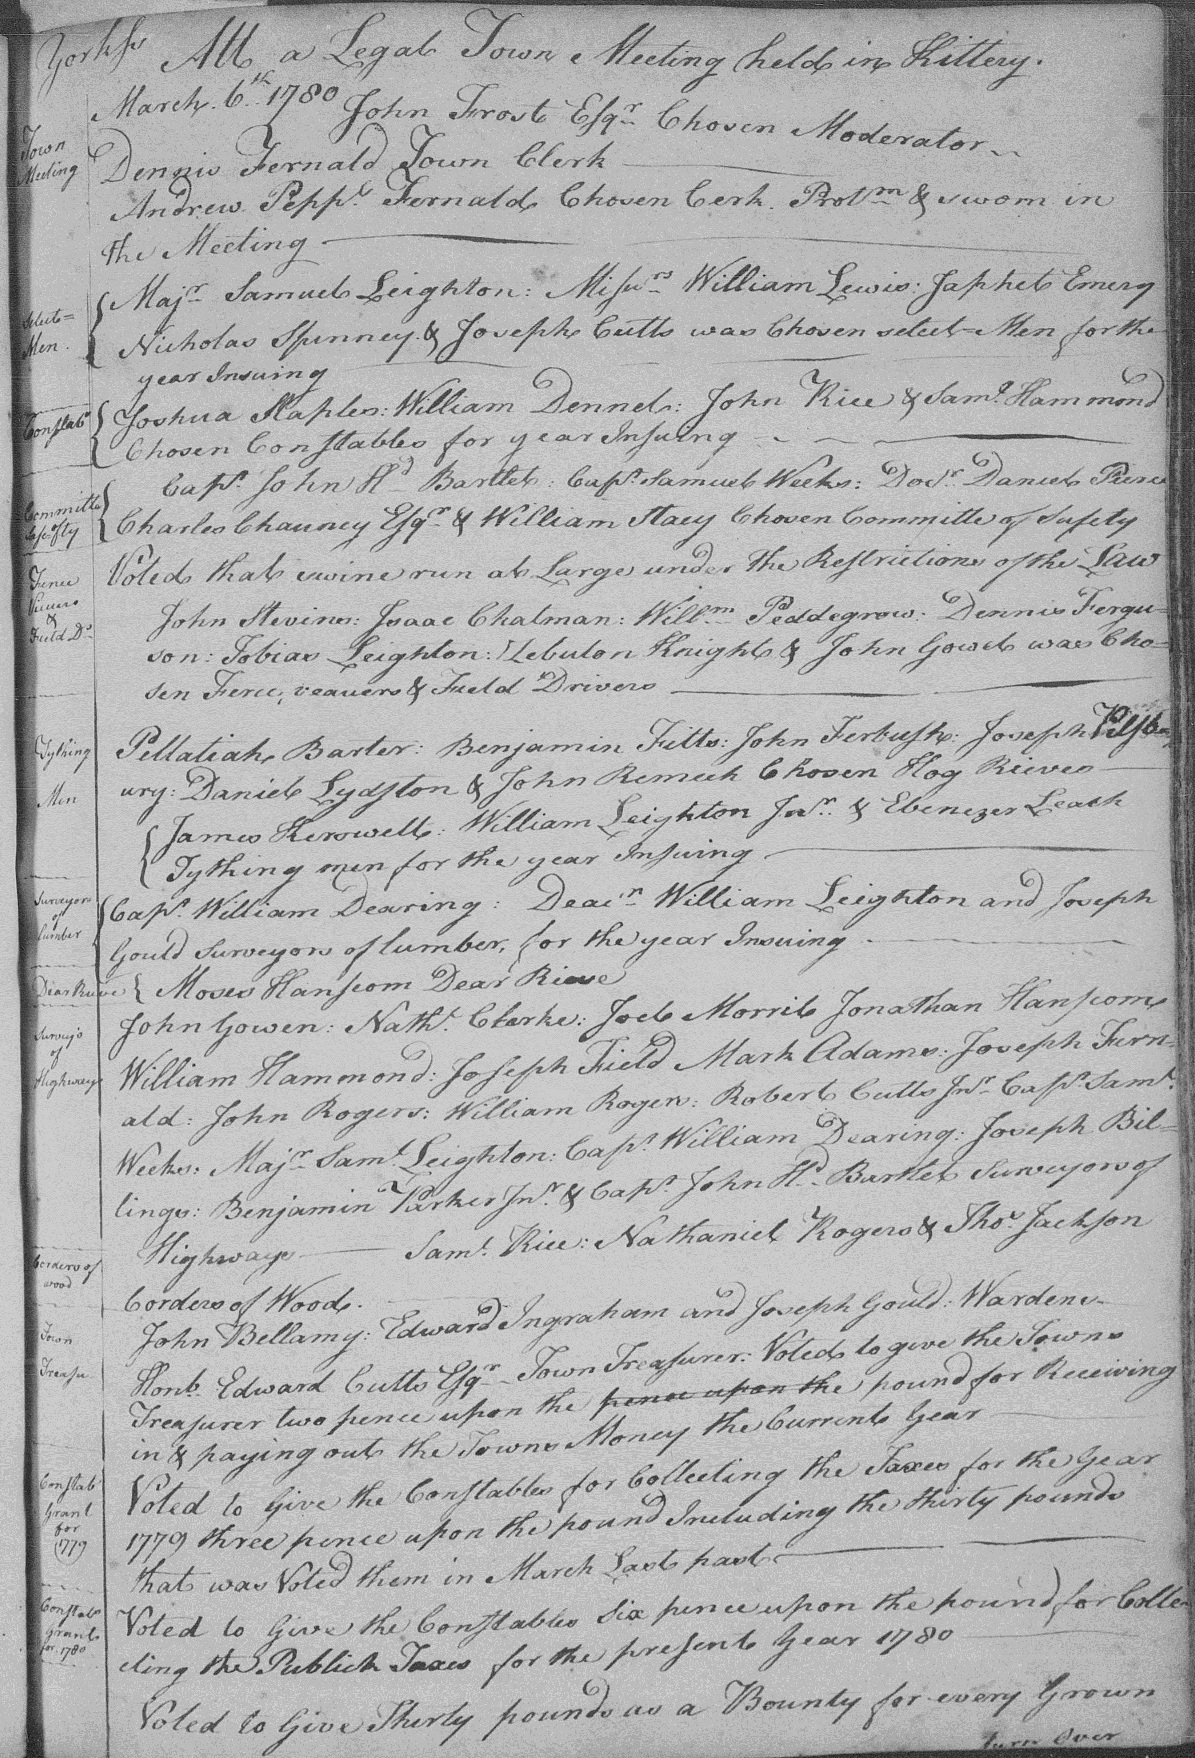 Yorkss Att a Legal Town Meeting held in Kittery.
March. 6th. 1780 John Frost Esqr Chosen Moderator
Town
Meeting
Dennis Fernald Town Clerk
Andrew Peppl Fernald Chosen Cerk. Protm & sworn in
the Meeting
Select=
Men.
Majr Samuel Leighton: Missrs William Lewis: Japhet Emery
Nicholas Spinney & Joseph Cutts was Chosen select-Men for the
year Insuing
Constabs
Joshua Staples: William Dennet: John Rice & Saml Hammond
Chosen Constables for year Insuing
Committe
of
Safty
Capt John Hd Bartlet: Capt Samuel Weeks: Docr Daniel Pierce
Charles Chauncy Esqr & William Stacy Chosen Committe of Safety
Voted that swine run at Large under the Restrictions of the Law
Fence
Viewers
&
Field Ds
John Stevins: Isaac Chatman: Willm Peddegrow: Dennis Fergu=
son: Tobias Leighton: Zebulon Knight & John Gowel was Cho=
sen Fence, veauers & Field Drivers
Tything
Men
Pellatiah Barter: Benjamin Fitts: John Ferbush: Joseph Pilsb
ury: Daniel Lydston & John Remeck Chosen Hog Rieves
James Kerswell: William Leighton Jnr. & Ebenezer Leach
Tything men for the year Insuing
Surveyors
of
Lumber
Capt. William Dearing: Deacn William Leighton and Joseph
Gould Surveyors of lumber, for the year Insuing
Dear Rieve
Moses Hanscom Dear Rieve
Surveyrs
of
Highways
John Gowen: Nathl. Clarke: Joel Morril Jonathan Hanscom
William Hammond: Joseph Field Mark Adams: Joseph Fern=
ald: John Rogers: William Rogers: Robert Cutts Jnr Capt. Saml.
Weeks: Majr Saml Leighton: Capt William Dearing: Joseph Bil=
lings: Benjamin Parker Jnr & Capt John Hd Bartlet Surveyors of
Highways Saml. Rice: Nathaniel Rogers & Thos Jackson
Corders of
wood
Corders of Wood.
John Bellamy: Edward Ingraham and Joseph Gould: Wardens
Town
Treasu
Honbl Edward Cutts Esqr Town Treasurer: Voted to give the Towns
Treasurer two pence upon the pence upon the pound for Receiving
in & paying out the Towns Money the Current Year
Constabs
Grant
for
1779
Voted to Give the Constables for Collecting the Taxes for the Year
1779 three pence upon the pound Including the thirty pounds
that was Voted them in March Last past
Constabs
Grant
for 1780
Voted to Give the Constables six pence upon the pound for Colle
cting the Publick Taxes for the present Year 1780
Voted to Give Thirty pounds as a Bounty for every Grown
turn Over